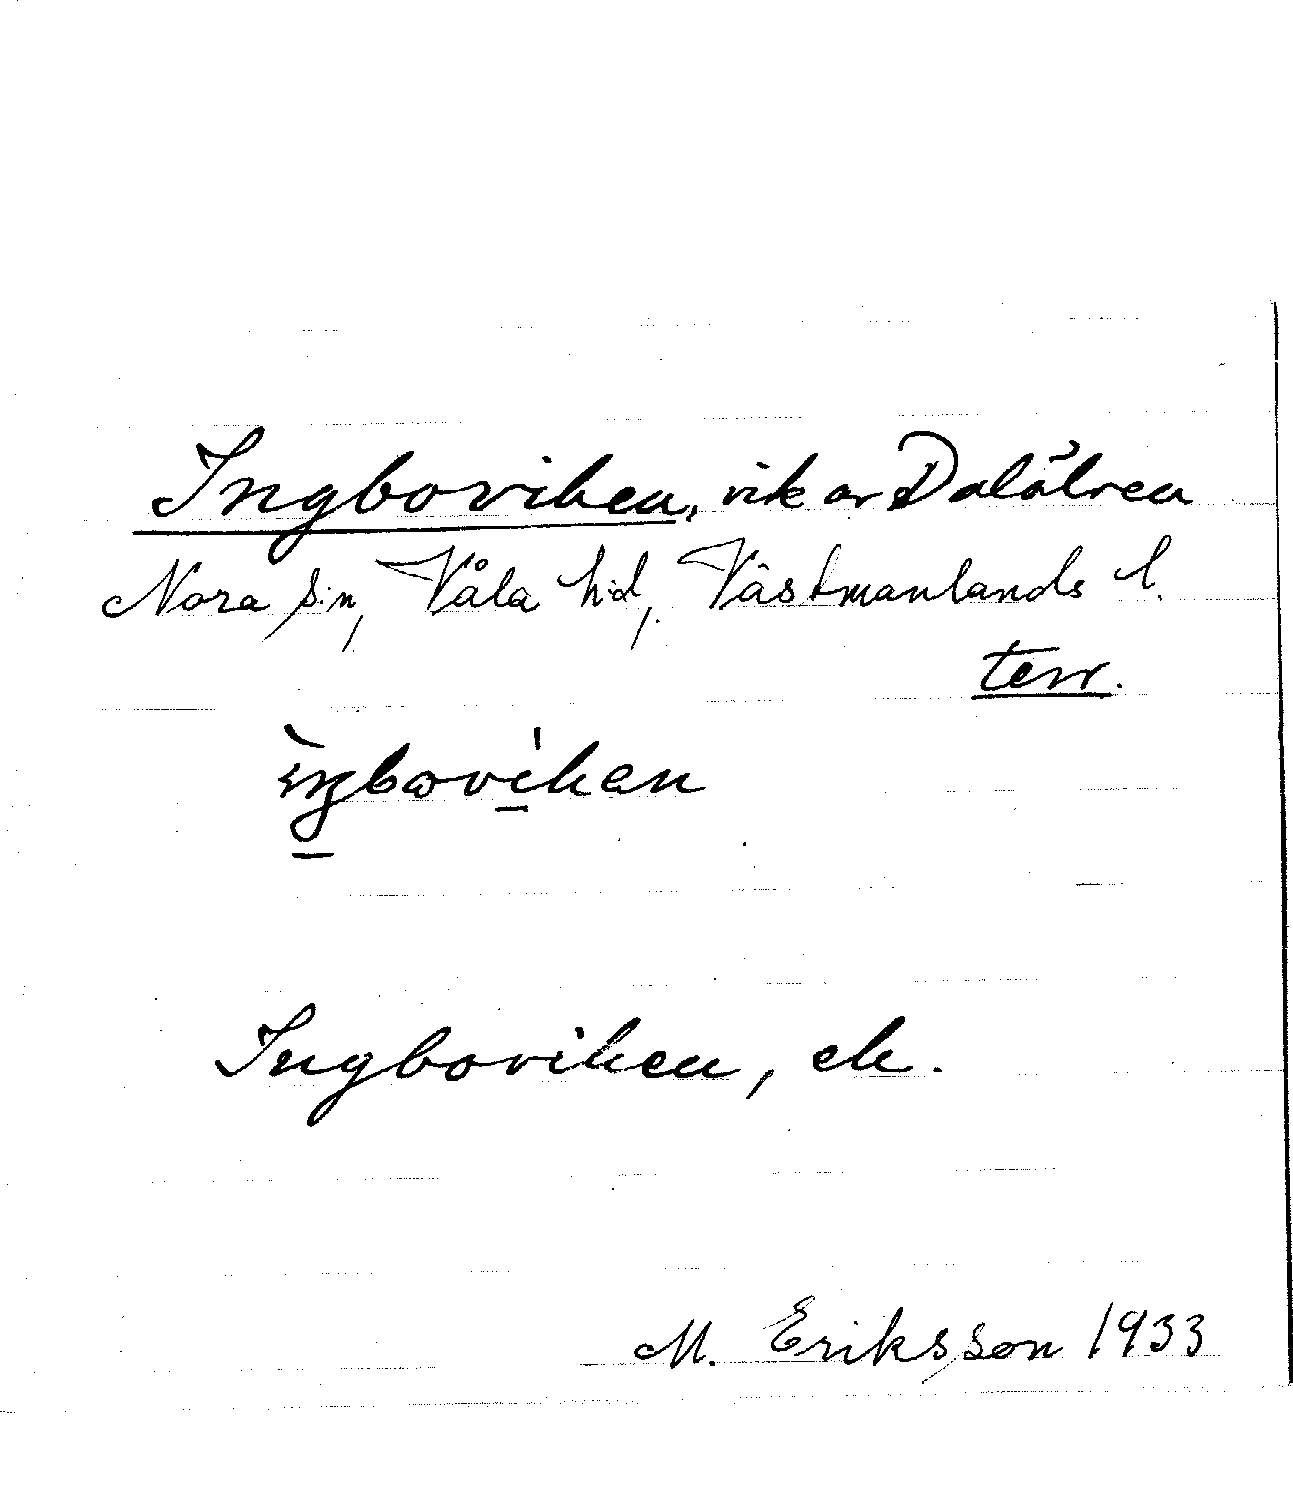 Ingboviken, vik av Dalälven
Nora s:n, Våla h:d, Västmanlands l.
terr.
Ingboviken, ek.
M. Eriksson 1933